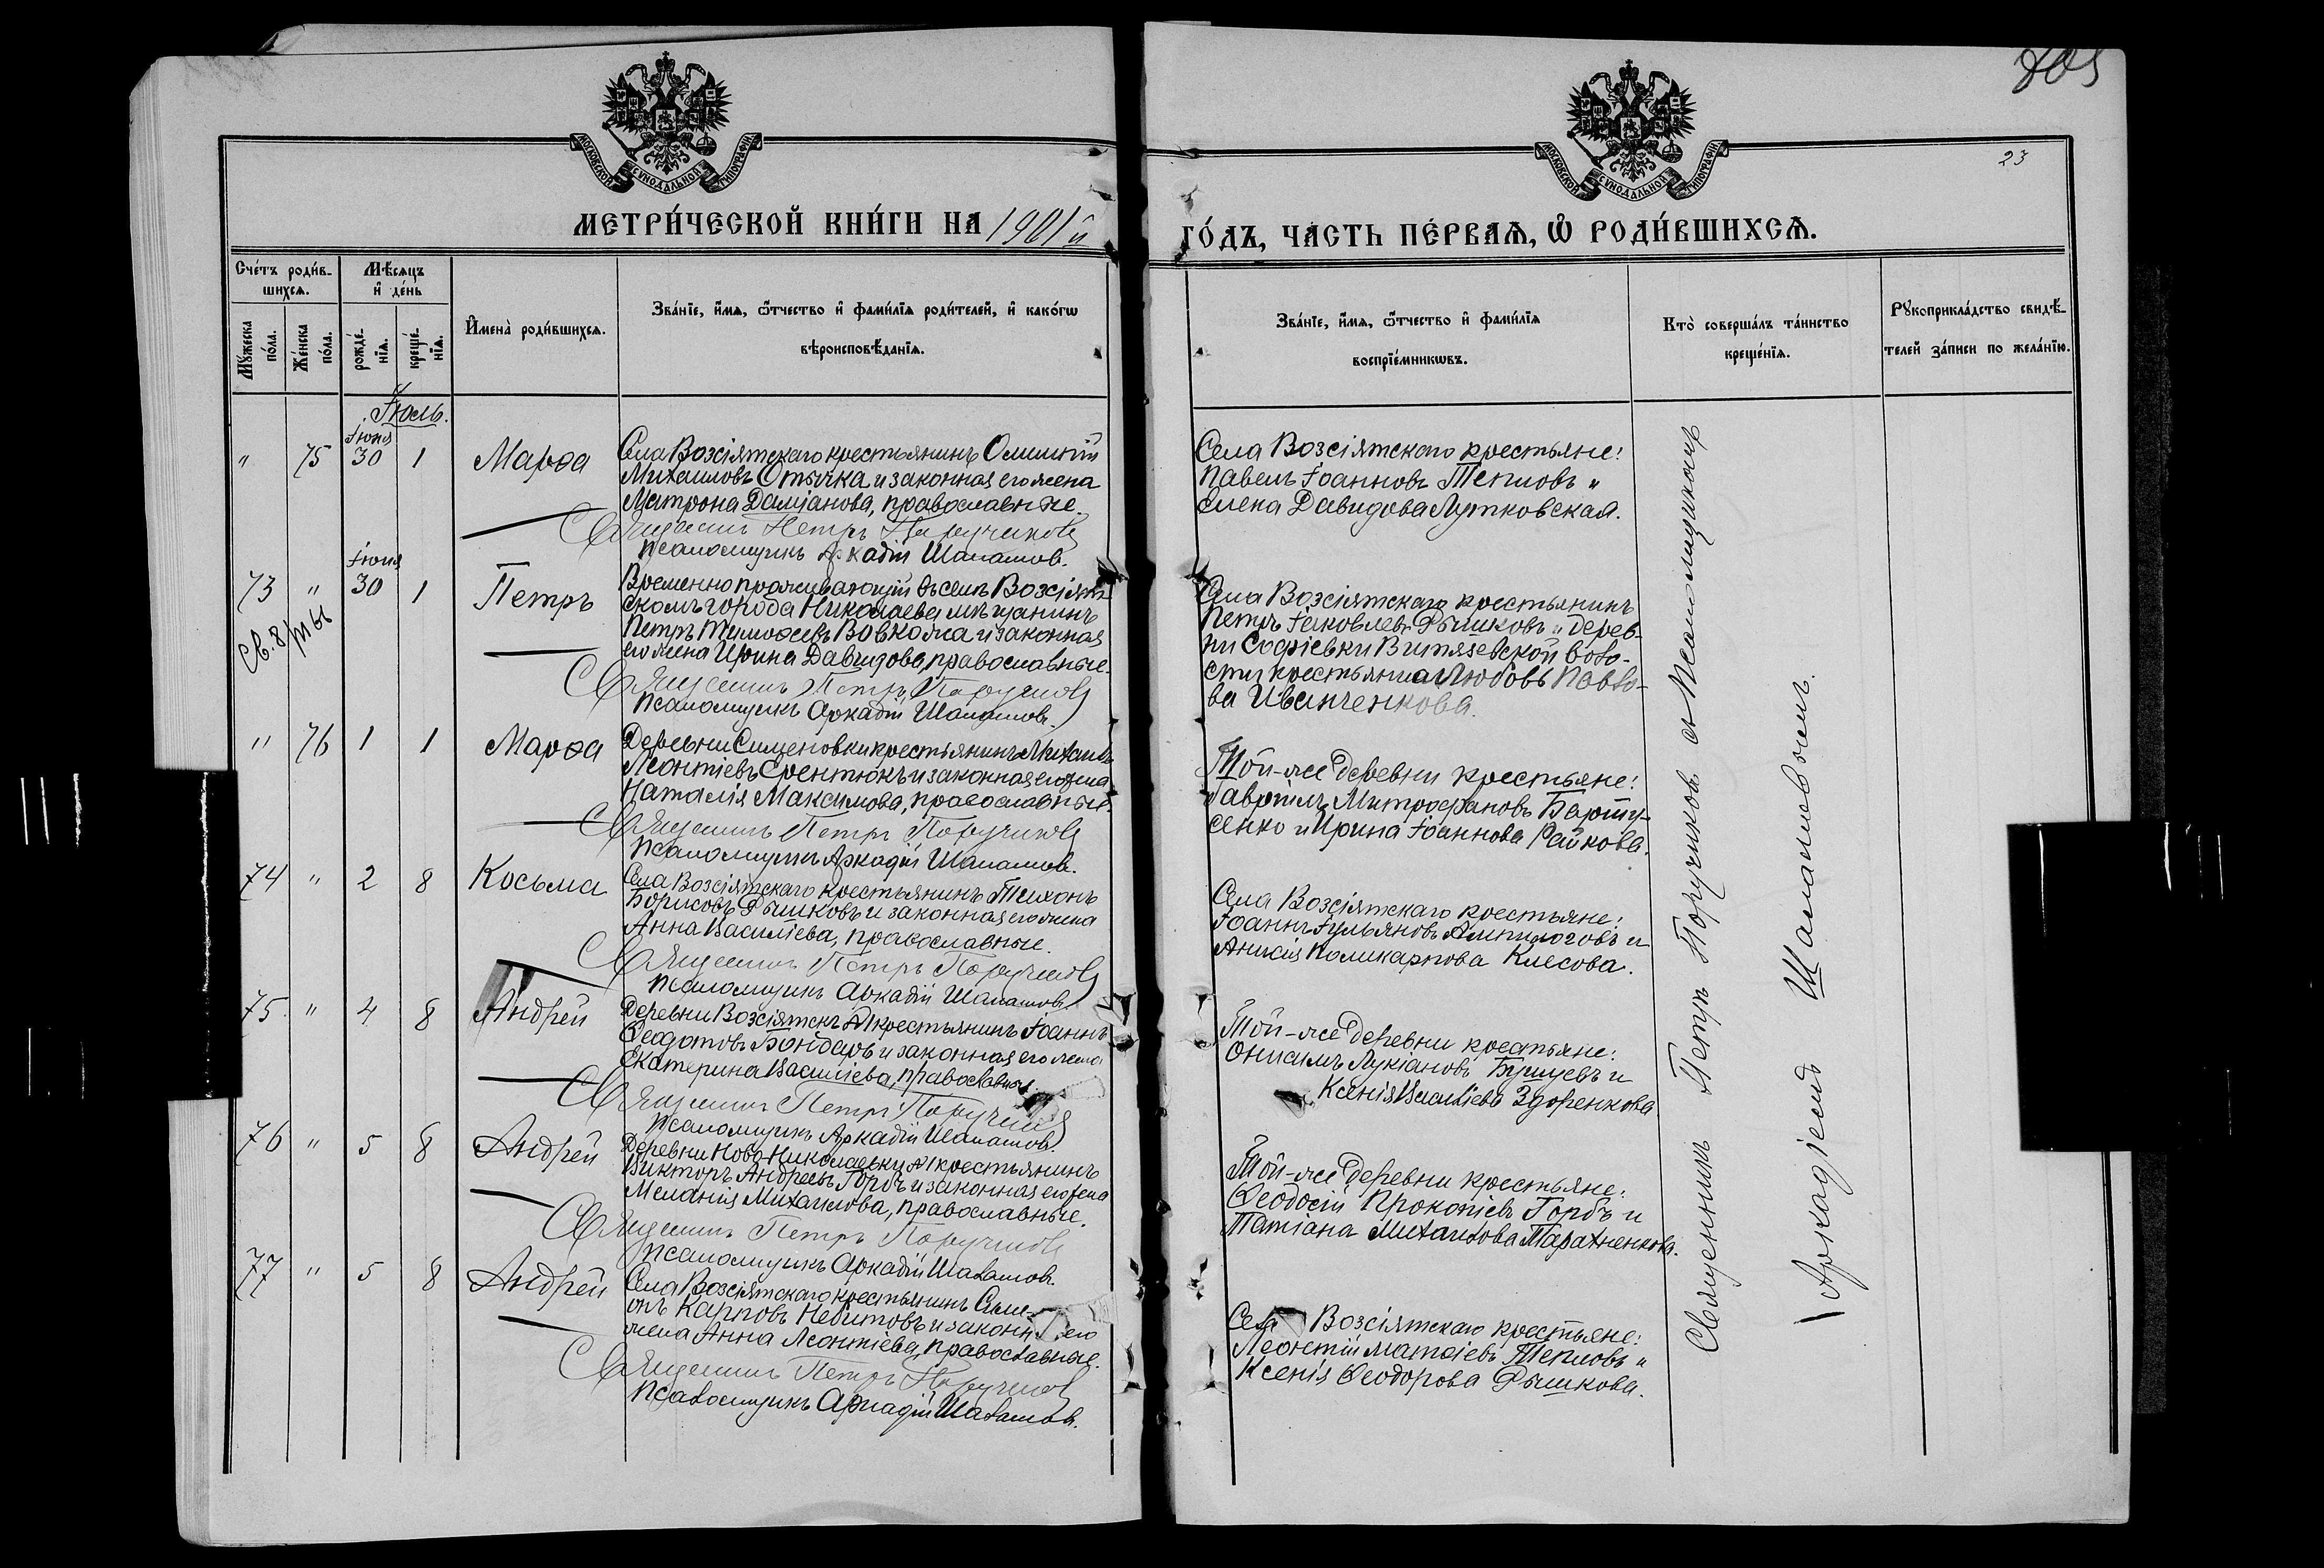 805
23
МОСКОВСКОЙ СѴНОДАЛЬНОЙ ТИПОГРАФІИ
МОСКОВСКОЙ СѴНОДАЛЬНОЙ ТИПОГРАФІИ
МЕТРИ́ЧЕСКОЙ КНИ́ГИ НА 1901й
ГО́ДЪ, ЧА́СТЬ ПЕ́РВАѦ, Ѿ РОДИ́ВШИХСѦ.
Сче́тъ роди́в-
шихсѧ.
Мѣ́сяцъ
и҆ де́нь
Мꙋ́жеска по́ла.
Же́нска по́ла.
рожде́-
нїѧ.
креще́-
нїѧ.
И҆мена̀ роди́вшихсѧ.
Зва́нїе, и҆́мѧ, ѻ҆́тчество и҆ фами́лїѧ роди́телей, и҆ како́гѡ
вѣроисповѣ́данїѧ.
Зва́нїе, и҆́мѧ, ѻ҆́тчество и҆ фами́лїѧ
воспрїе́мникѡвъ.
Кто̀ соверша́лъ та́инство
креще́нїѧ.
Рꙋкоприкла́дство свидѣ́-
телей за́писи по жела́нїю.
Іюль.
Іюня
" 75 30 1 Марѳа
Села Возсіятскаго крестьянинъ
Михаиловъ Отычка и законная его жена
Матрона Даміанова, православные.
Священникъ Петръ Поручиковъ
Псаломщикъ Аркадій Шалашовъ.
Села Возсіятскаго крестьяне:
Павелъ Іоанновъ Тепловъ и
Елена Давидова Лутковская.
Іюня
73 " 30 1 Петръ
Св. 8
Временно проживающій въ селѣ Возсіят-
скомъ города Николаева мѣщанинъ
Петръ Тимоѳеевъ Вовкожа и законная
его жена Ирина Давидова, православные.
Священникъ Петръ Поручиковъ
Псаломщикъ Аркадій Шалашовъ.
Села Возсіятскаго крестьянинъ
Петръ Іаковлевъ Рышковъ и дерев-
ни Софіевки Витязевской воло-
сти крестьянка Любовь Павло-
ва Иванченкова.
" 76 1 1 Марѳа
Деревни Сименовки крестьянинъ Михаилъ
Леонтіевъ Срентюкъ и законная его жена
Наталія Максимова, православные.
Священникъ Петръ Поручиковъ
Псаломщикъ Аркадій Шалашовъ.
Той-же деревни крестьяне:
Гавріилъ Митрофановъ Барту-
сенко и Ирина Іоаннова Райкова.
74 " 2 8 Косьма
Села Возсіятскаго крестьянинъ Тихонъ
Борисовъ Рышковъ и законная его жена
Анна Василіева, православные.
Священникъ Петръ Поручиковъ
Псаломщикъ Аркадій Шалашовъ.
Села Возсіятскаго крестьяне:
Іоаннъ Іульяновъ Ампилоговъ и
Анисія Поликарпова Клесова.
75. " 4 8 Андрей
Деревни Возсіятскъ крестьянинъ Іоаннъ
Ѳедотовъ Бондарь и законная его жена
Екатерина Василіева, православные.
Священникъ Петръ Поручиковъ
Псаломщикъ Аркадій Шалашовъ.
Той-же деревни крестьяне:
Онисимъ Лукіановъ Бушуевъ и
Ксенія Василіева Здоренкова
76 " 5 8 Андрей
Деревни Ново-Николаевки крестьянинъ
Викторъ Андреевъ Горбъ и законная его жена
Меланія Михаилова, православные.
Священникъ Петръ Поручиковъ
Псаломщикъ Аркадій Шалашовъ.
Той-же деревни крестьяне:
Ѳеодосій Прокопіевъ Горбъ и
Татіана Михаилова Тарахненкова.
77 " 5 8 Андрей
Села Возсіятскаго крестьянинъ Симе-
онъ Карповъ Небитовъ и законн его
жена Анна Леонтіева, православные.
Священникъ Петръ Поручиковъ
Псаломщикъ Аркадій Шалашовъ.
Села Возсіятскаго крестьяне:
Леонтій Матѳіевъ Тепловъ и
Ксенія Ѳеодорова Рышкова.
Священникъ Петръ Поручиковъ съ Псаломщикомъ
Аркадіемъ Шалашовымъ.